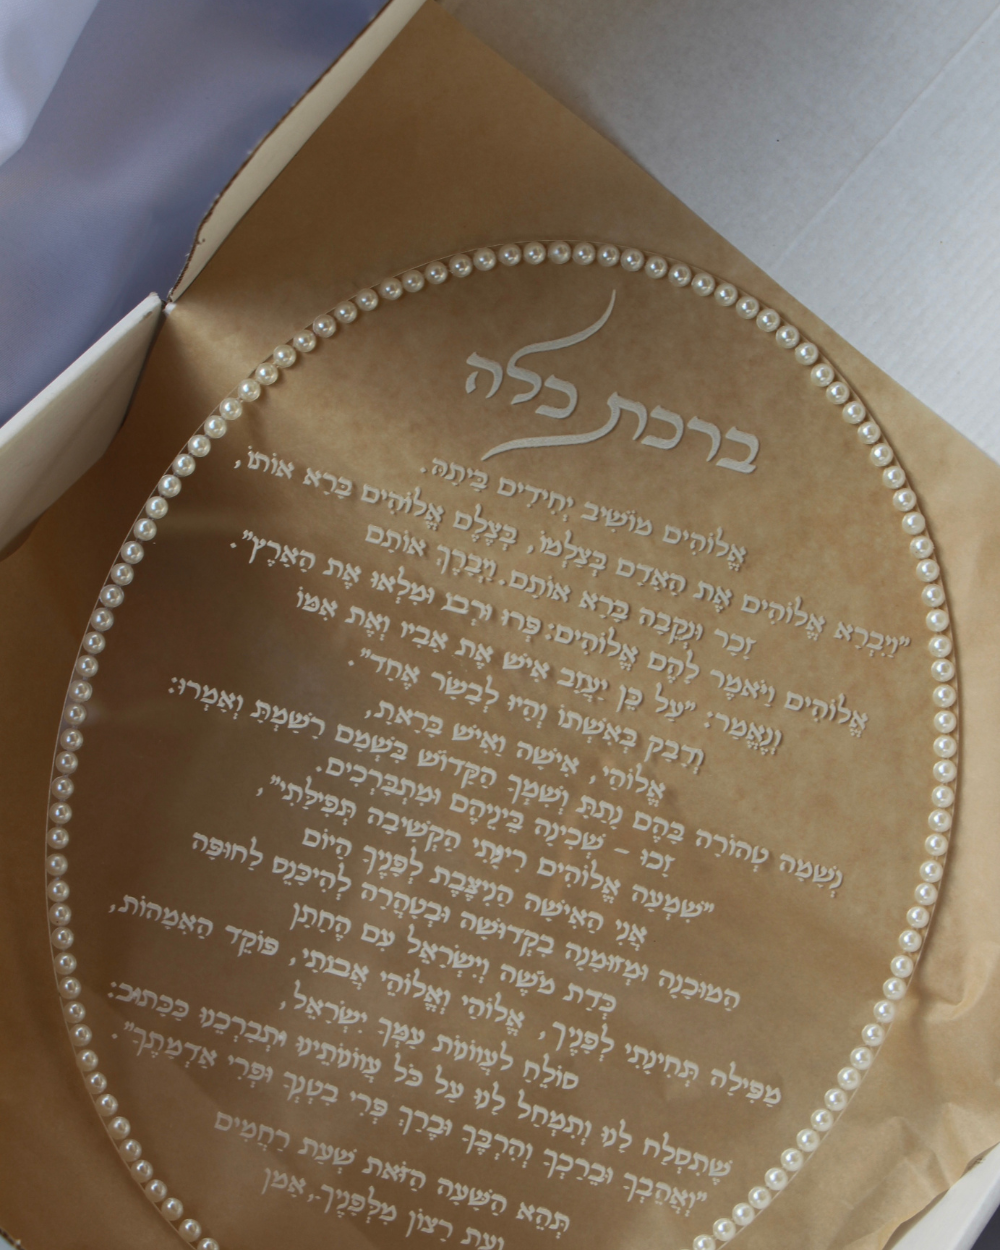 ברכת כלה
אֱלוֹהִים מוֹשִׁיב יְחִידִים בַּיְתָהּ.
"וַיִּבְרָא אֱלוֹהִים אֶת הָאָדָם בְּצַלְמוֹ, בְּצֶלֶם אֱלוֹהִים בָּרָא אוֹתוֹ,
זָכָר וּנְקֵבָה בָּרָא אוֹתָם. וַיְבָרֶךְ אוֹתָם
אֱלוֹהִים וַיֹּאמֶר לָהֶם אֱלוֹהִים: פְּרוּ וּרְבוּ וּמִלְאוּ אֶת הָאָרֶץ".
וְנֶאֱמַר: "עַל כֵּן יַעֲזֹב אִישׁ אֶת אָבִיו וְאֶת אִמּוֹ
וְדָבַק בְּאִשְׁתּוֹ וְהָיוּ לְבָשָׂר אֶחָד".
אֱלוֹהַי, אִישָׁה וְאִישׁ בָּרָאתָ,
נְשָׁמָה טְהוֹרָה בָּהֶם נָתַתָּ וְשִׁמְךָ הַקָּדוֹשׁ בִּשְׁמָם רָשַׁמְתָּ וְאָמְרוּ:
זָכוּ - שְׁכִינָה בֵּינֵיהֶם וּמִתְבָּרְכִים.
"שִׁמְעָה אֱלוֹהִים רִינָּתִי הַקְשִׁיבָה תְּפִילָּתִי",
אֲנִי הָאִישָׁה הַנִּיצֶּבֶת לְפָנֶיךָ הַיּוֹם
הַמּוּכָנָה וּמְזוּמָנָה בִּקְדוּשָּׁה וּבְטָהֳרָה לְהִיכָּנֵס לַחוּפָּה
כְּדַת מֹשֶׁה וְיִשְׂרָאֵל עִם הֶחָתָן
מַפִּילָה תְּחִינָתִי לְפָנֶיךָ, אֱלוֹהַי וֶאֱלוֹהֵי אֲבוֹתַי, פּוֹקֵד הָאִמָּהוֹת,
סוֹלֵחַ לַעֲווֹנוֹת עַמְּךָ יִשְׂרָאֵל,
שֶׁתִּסְלַח לָנוּ וְתִמְחַל לָנוּ עַל כָּל עֲווֹנוֹתֵינוּ וּתְבָרְכֵנוּ כַּכָּתוּב:
"וַאֲהֵבְךָ וּבֵרַכְךָ וְהִרְבֶּךָ וּבֵרַךְ פְּרִי בִטְנְךָ וּפְרִי אַדְמָתֶךָ".
תְּהֵא הַשָּׁעָה הַזֹּאת שְׁעַת רַחֲמִים
וְעֵת רָצוֹן מִלְּפָנֶיךָ, אָמֵן